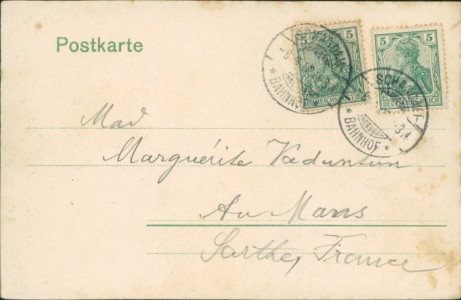 Postkarte
5 5
5
BAHNHOF
BAHNHOF
Mad
Marguérite Vaduntun
Au Mans
Sarthe, France